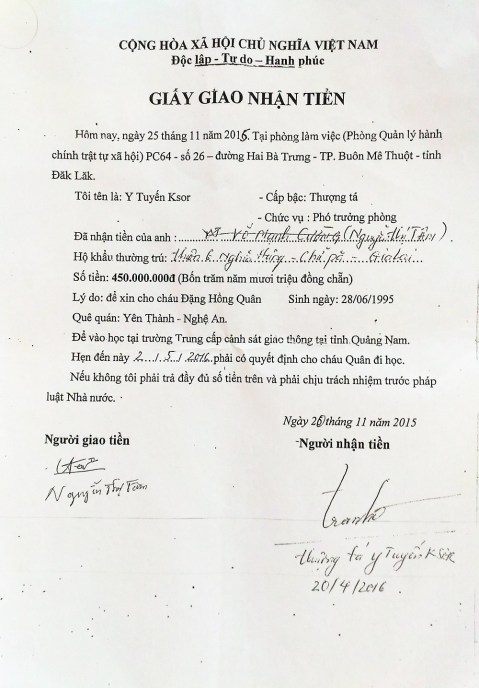 CỘNG HÒA XÃ HỘI CHỦ NGHĨA VIỆT NAM
Độc lập - Tự do – Hạnh phúc
GIẤY GIAO NHẬN TIỀN
Hôm nay, ngày 25 tháng 11 năm 2015. Tại phòng làm việc (Phòng Quản lý hành
chính trật tự xã hội) PC64 - số 26 – đường Hai Bà Trưng - TP. Buôn Mê Thuột - tỉnh
Đăk Lăk.
Tôi tên là: Y Tuyến Ksor - Cấp bậc: Thượng tá
- Chức vụ : Phó trưởng phòng
Đã nhận tiền của anh : Võ Mạnh Cường (Nguyễn Thị Tâm).
Hộ khẩu thường trú: Thôn 6 Nghĩa Hưng - Chư Pả - Gia Lai
Số tiền: 450.000.000đ (Bốn trăm năm mươi triệu đồng chẵn)
Lý do: để xin cho cháu Đặng Hồng Quân Sinh ngày: 28/06/1995
Quê quán: Yên Thành - Nghệ An.
Để vào học tại trường Trung cấp cảnh sát giao thông tại tỉnh Quảng Nam.
Hẹn đến này 2/5/2016 phải có quyết định cho cháu Quân đi học.
Nếu không tôi phải trả đầy đủ số tiền trên và phải chịu trách nhiệm trước pháp
luật Nhà nước.
Ngày 26 tháng 11 năm 2015
Người giao tiền Người nhận tiền
Nguyễn Thị Tâm
Thượng tá Y Tuyến KSOR
20/4/2016